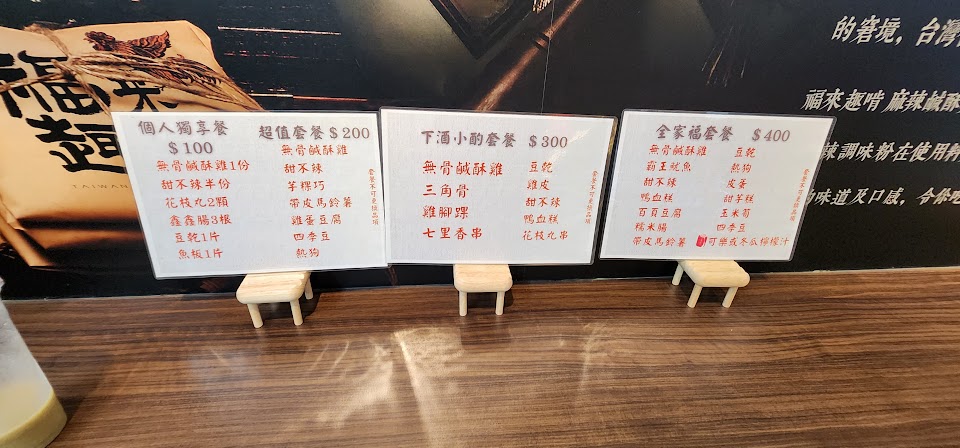 福來
趣
TAIWAN
個人獨享餐
$100
無骨鹹酥雞1份
甜不辣半份
花枝丸2顆
鑫鑫腸3根
豆乾1片
魚板1片
超值套餐 $200
無骨鹹酥雞
甜不辣
芋粿巧
帶皮馬鈴薯
雞蛋豆腐
四季豆
熱狗
套餐不可更換品項
下酒小酌套餐 $300
無骨鹹酥雞
三角骨
雞腳踝
七里香串
豆乾
雞皮
甜不辣
鴨血糕
花枝丸串
套餐不可更換品項
全家福套餐 $400
無骨鹹酥雞
霸王魷魚
甜不辣
鴨血糕
百頁豆腐
糯米腸
帶皮馬鈴薯
豆乾
熱狗
皮蛋
甜芋糕
玉米筍
四季豆
可樂或冬瓜檸檬汁
套餐不可更換品項
的窘境, 台灣
福來趣啃 麻辣鹹酥
辣調味粉在使用
的味道及口感, 令你吃